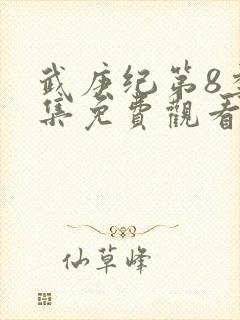 武庚纪第8季
集免费觀看
仙草峰